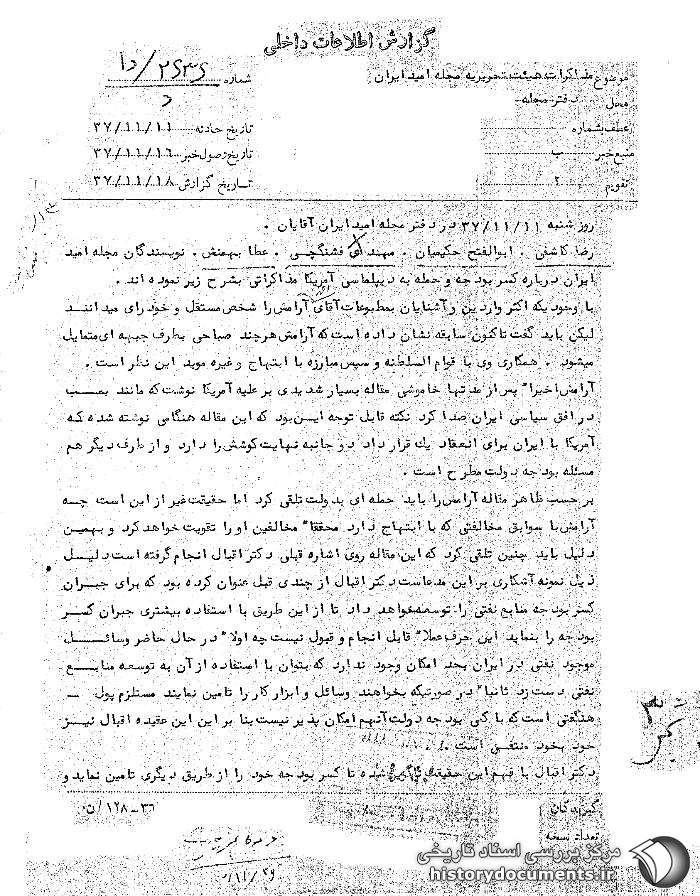 گزارش اطلاعات داخلی
موضوع مذاکرات هیئت تحریریه مجله امید ایران
شماره
محل دفتر مجله
عطف بشماره
تاریخ حادثه ۳۷/۱۱/۱۱
منبع خبر ب
تاریخ وصول خبر ۳۷/۱۱/۱۶
تقویم ۲
تاریخ گزارش ۳۷/۱۱/۱۸
روز شنبه ۳۷/۱۱/۱۱ در دفتر مجله امید ایران آقایان .
رضا کاشفی . ابوالفتح حکیمیان . مهدی قشنگچی . عطا بهمنش . نویسندگان مجله امید
ایران درباره کسر بودجه و حمله به دیپلماسی آمریکا مذاکراتی بشرح زیر نموده اند .
با وجودیکه اکثر واردین و آشنایان بمطبوعات آقای آرامش را شخص مستقل و خود رای میدانند
لیکن باید گفت تاکنون سابقه نشان داده است که آرامش هر چند صباحی بطرف جبهه ای متمایل
میشود . همکاری وی با قوام السلطنه و سپس مبارزه با ابتهاج و غیره موید این نظر است .
آرامش اخیرا" پس از مدتها خاموشی مقاله بسیار شدیدی بر علیه آمریکا نوشت که مانند بمب
در افق سیاسی ایران صدا کرد نکته قابل توجه این بود که این مقاله هنگامی نوشته شده که
آمریکا با ایران برای انعقاد یک قرار داد دو جانبه نهایت کوشش را دارد و از طرف دیگر هم
مسئله بودجه دولت مطرح است .
بر حسب ظاهر مقاله آرامش را باید حمله ای بدولت تلقی کرد اما حقیقت غیر از این است چه
آرامش با سوابق مخالفتی که با ابتهاج دارد محققا" مخالفین او را تقویت خواهد کرد و بهمین
دلیل باید چنین تلقی کرد که این مقاله روی اشاره قبلی دکتر اقبال انجام گرفته است دلیل
ذیل نمونه آشکاری بر این مدعاست دکتر اقبال از چندی قبل عنوان کرده بود که برای جبران
کسر بودجه منابع نفتی را توسعه خواهد داد تا از این طریق با استفاده بیشتری جبران کسر
بودجه را بنماید این حرف عملا" قابل انجام و قبول نیست چه اولا" در حال حاضر وسائل
موجود نفتی در ایران بحد امکان وجود ندارد که بتوان با استفاده از آن به توسعه منابع
نفتی دست زد ثانیا" در صورتیکه بخواهند وسائل و ابزار کار را تامین نمایند مستلزم پول ـ
هنگفتی است که با کمی بودجه دولت آنهم امکان پذیر نیست بنا بر این این عقیده اقبال نیز
خود بخود منتفی است
دکتر اقبال با فهم این حقیقت شده تا کسر بودجه خود را از طریق دیگری تامین نماید و
گیرندگان
تعداد نسخه
۱۲۸-۳۶
مرکز بررسی اسناد تاریخی
historydocuments.ir